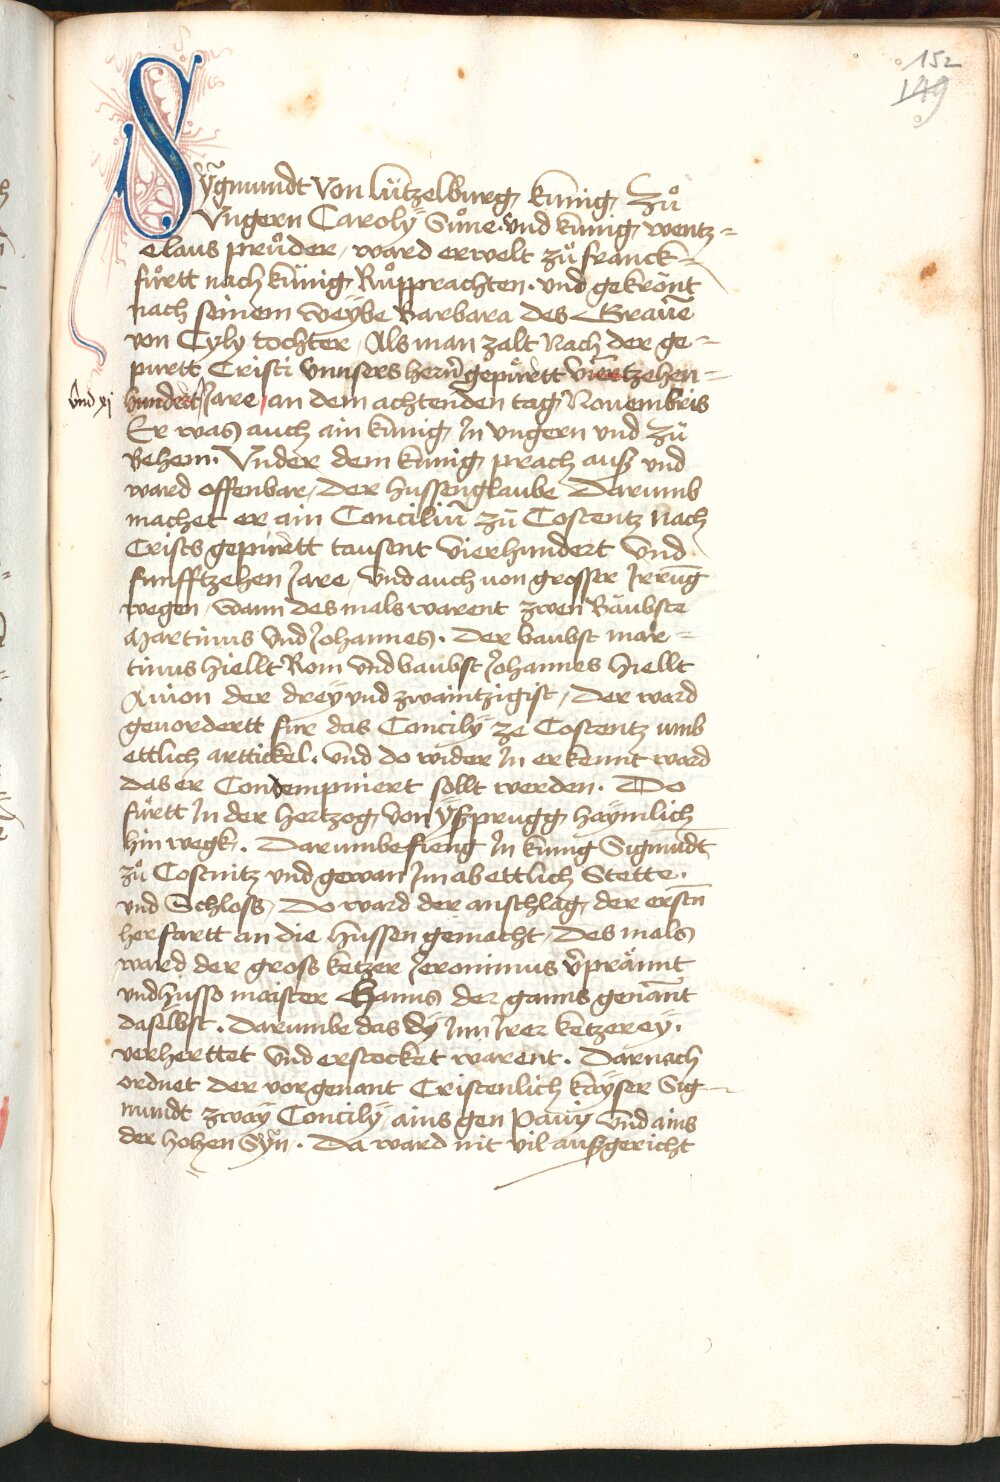 152
149
Sÿgmundt von lützelburg, kunig, zů
Vngern Carolÿ Sůne. vnd kunig, wentz=
elaus průder, ward erwelt zů franck=
fürtt nach künig Růpprachten. vnd gekrönt
nach seinem weÿbe Barbara des Grauen̄
von Cyly tochter, Als man zalt Nach der ge=
purtt Cristi vnnsers herrn̄ gepürtt viertzehen=
vnd xj hundert Jare, an dem achtenden tag, Nouembris
Er was auch ain kunig, Jn vngern vnd zů
Behem. Vnder dem kunig, prach auß vnd
ward offenbar, Der hussenglaube Darumb
machet er ain Conciliu̅ zů Costentz Nach
Crists gepürtt tausent vierhundert vnd
funfftzehen Jare, vnd auch von grosser Jrru̅g
wegen, wann des mals warent zwen Bäubste
Martinus vnd Johannes. Der baubst mar=
tinus hiellt Rom vnd baubst Johannes hiellt
Auion der dreÿ vnd zwaintzigist, Der ward
geuordertt für das Concilÿ ze Costentz vmb
ettlich arttickel. vnd do wider Jn erkennt ward
das er Condempniert sollt werden. Do
fürtt Jn der hertzog, von ÿßprugg haÿmlich
hin wegk. Darumbe fieng Jn kunig Sigmu̅dt
zů Costnitz vnd gewan Jm ab ettlich Stette.
vnd Schloss, Do ward der anschlag, der erstn̄
herfartt an die hussen gemacht, Des mals
ward der gross ketzer Jeronimus v̾prännt
vnd husso maister Hanns der ganns gena̅nt
daselbst. Darumbe das dÿ Jnn Jrer ketzereÿ.
verherttet vnd erstocket warent. Darnach
ordnet der vorgenant Cristenlich kaÿser Sig=
mundt zwaÿ Concilÿ ains gen Pauiÿ vnd ains
der hohen Sÿn. Da ward nit vil außgericht